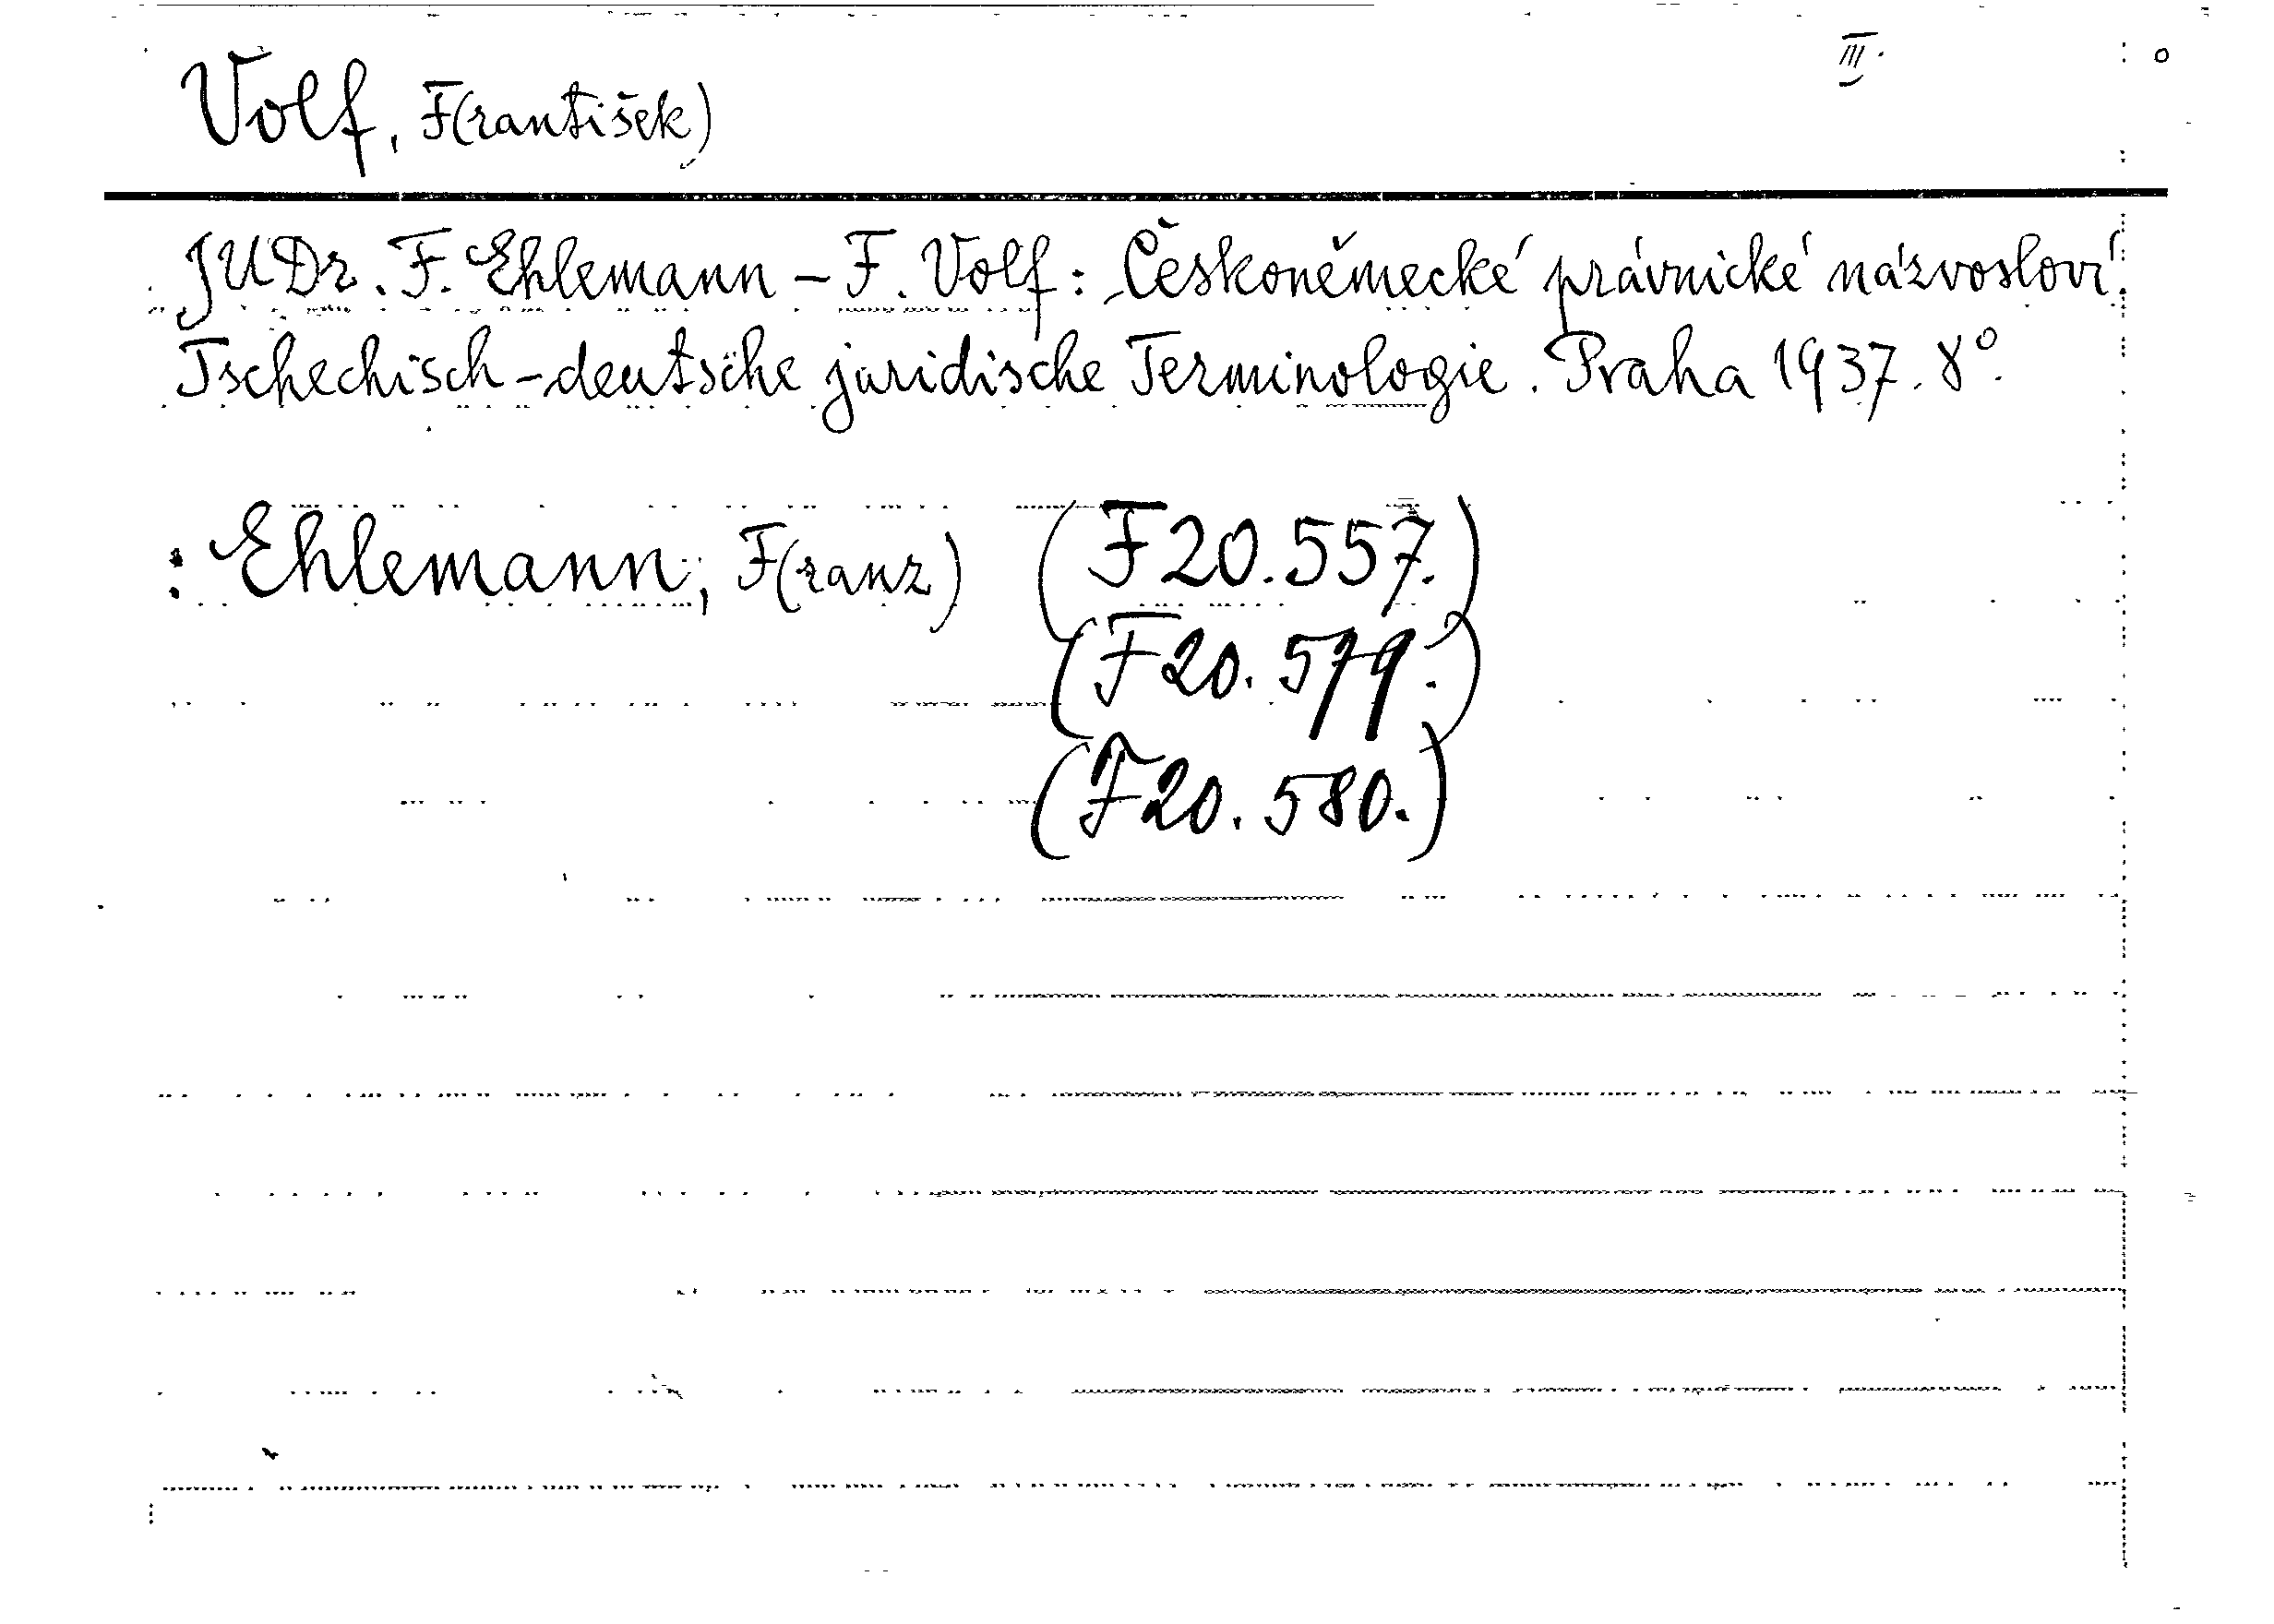 Volf, F(rantišek)
III.
JUDr. F. Ehlemann – F. Volf: Českoněmecké právnické názvosloví.
Tschechisch-deutsche juridische Terminologie. Praha 1937. 8°.
: Ehlemann, F(ranz) (F20.557.)
(F20.579.)
(F20.580.)